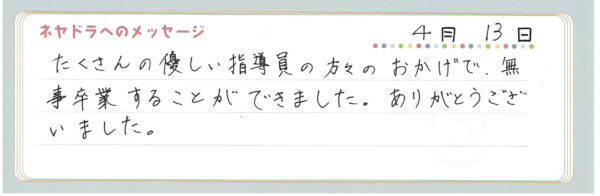 ネヤドラへのメッセージ 4月 13日
たくさんの優しい指導員の方々のおかげで、無
事卒業することができました。ありがとうござ
いました。